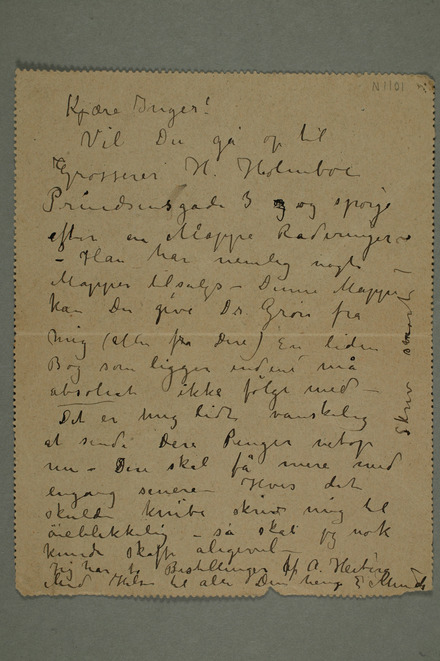 N 1101
Kjære Inger!
Vil Du gå op til
Grosserer H. Holmboe
Prindsensgade 3 og spørge
efter en Mappe Raderinger –
– Han har nemlig nogle
Mapper tilsalgs – Denne Mappe
kan Du give Dr. Grøn fra
mig (eller fra Dere) En liden
Bog som ligger indeni må
absolut ikke følge med –
Det er mig lidt vanskelig
at sende Dere Penger netop
nu – Dere skal få mere med
engang senere – Hvis det
skulde knibe skriv mig til
øieblikkelig – så skal jeg nok
kunde skaffe aligevel –
Jeg har to Bestillinger af A. Heiberg
Hils til alle Din heng E Munch
Skriv snart